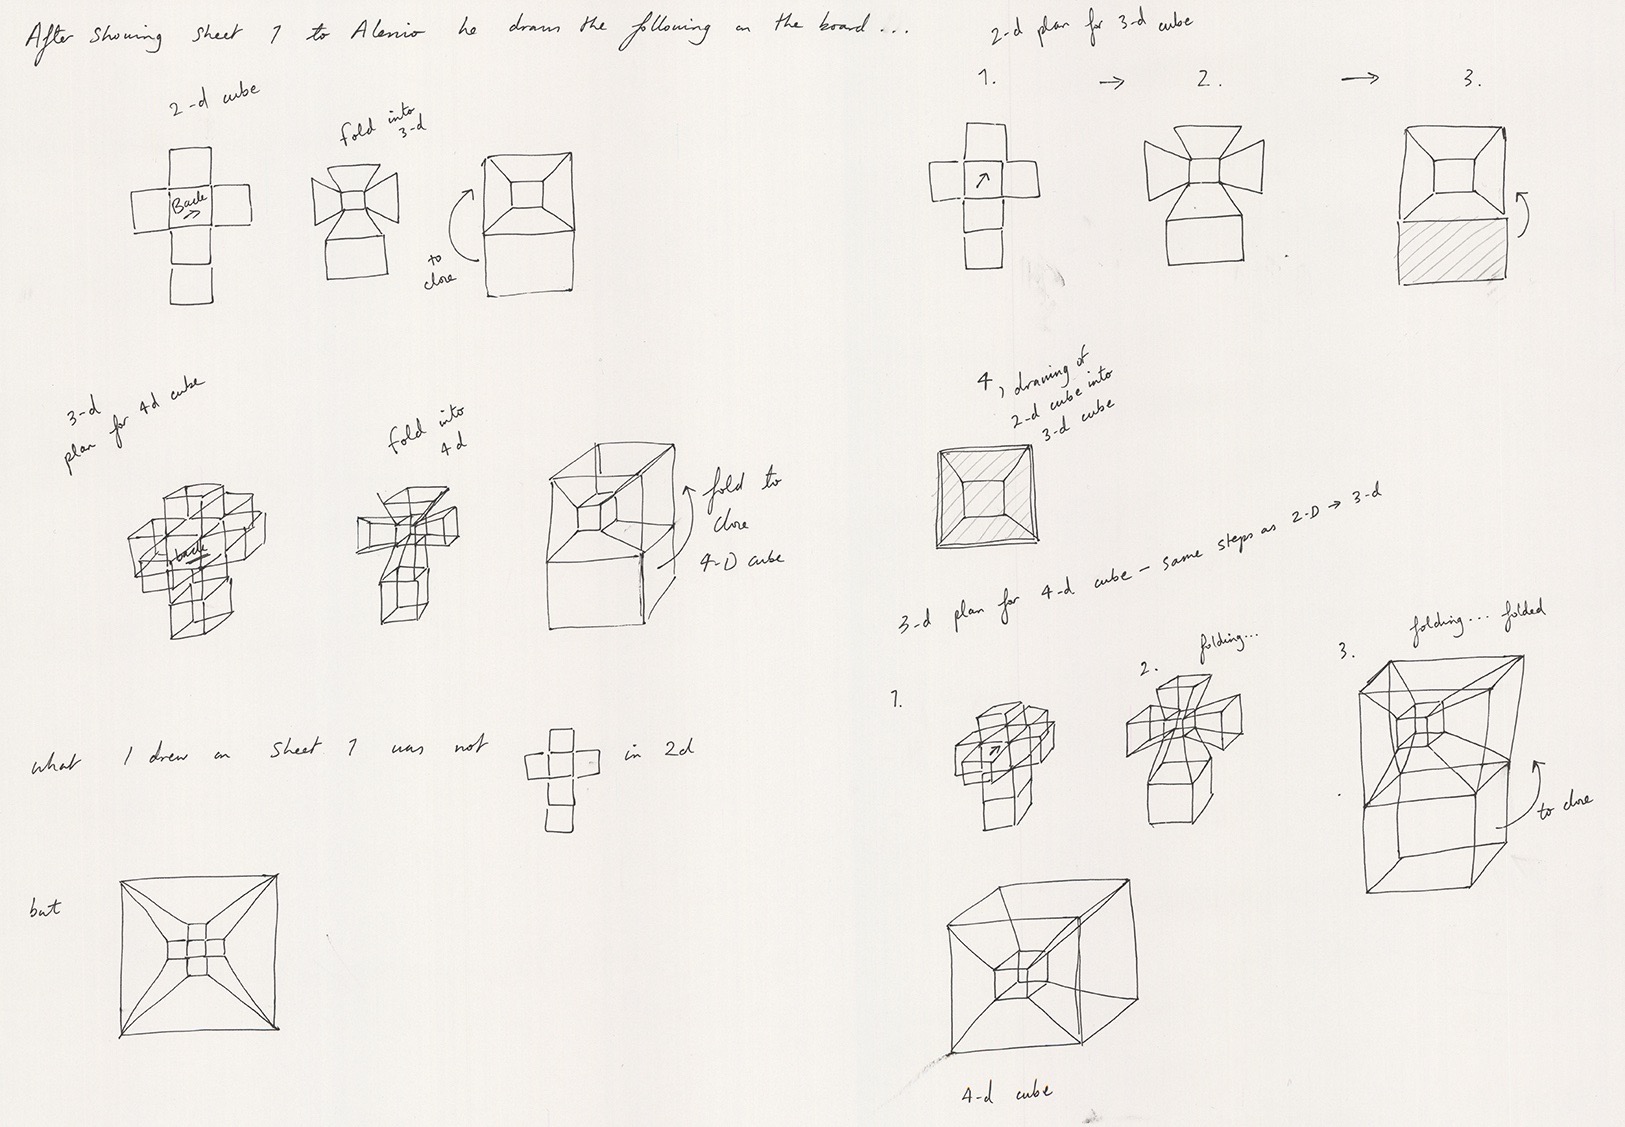 After showing sheet 1 to Alessio he draws the following on the board...
2-d cube
Back
fold into
3-d
to
close
3-d
plan for 4d cube
back
fold into
4d
fold to
close
4-D cube
what I drew on sheet 1 was not in 2d
but
2-d plan for 3-d cube
1. → 2. → 3.
4, drawing of
2-d cube into
3-d cube
3-d plan for 4-d cube - same steps as 2-D → 3-d
1.
2. folding...
3. folding... folded
to close
4-d cube